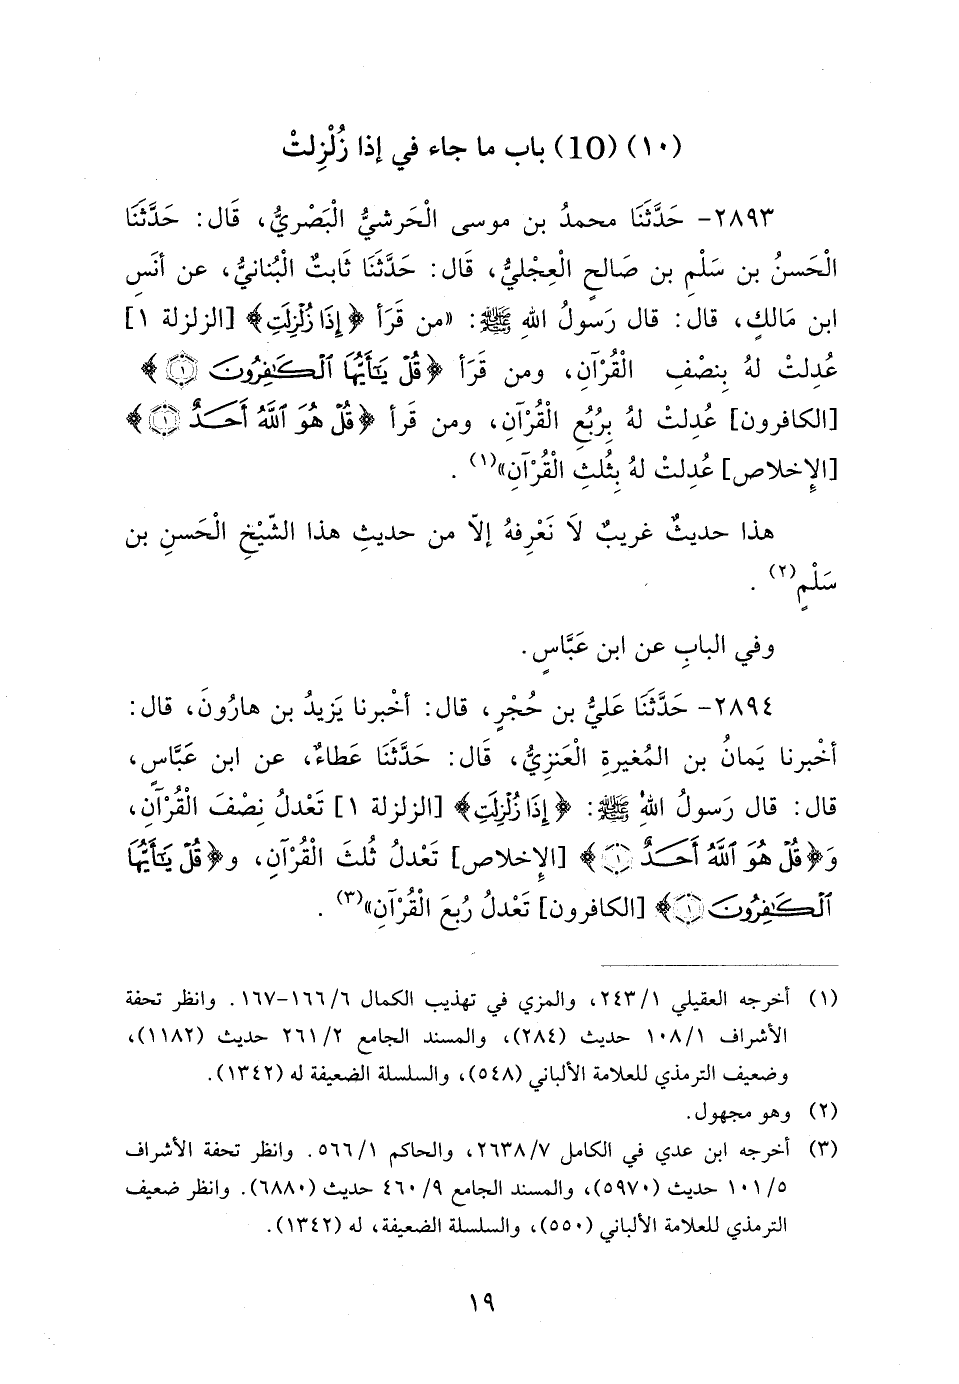 (١٠) (10) باب ما جاء في إذا زُلْزِلتْ
٢٨٩٣- حَدَّثَنَا محمدُ بن موسى الْحَرشيُّ الْبَصْريُّ، قَال: حَدَّثَنَا
الْحَسنُ بن سَلْمِ بن صَالحٍ الْعِجْليُّ، قَال: حَدَّثَنَا ثَابتٌ الْبُنانيُّ، عن أنَسِ
ابن مَالكٍ، قال: قال رَسولُ اللهِ ﷺ: «من قَرَأ ﴿إِذَا زُلْزِلَتِ﴾ [الزلزلة ١]
عُدِلتْ لهُ بِنصْفِ الْقُرْآنِ، ومن قَرَأ ﴿قُلْ يَٰٓأَيُّهَا ٱلْكَٰفِرُونَ ١﴾
[الكافرون] عُدِلتْ لهُ بِرُبُعِ الْقُرْآنِ، ومن قَرأ ﴿قُلْ هُوَ ٱللَّهُ أَحَدٌ ١﴾
[الإخلاص] عُدِلتْ لهُ بِثُلثِ الْقُرْآنِ»(١) .
هذا حديثٌ غريبٌ لاَ نَعْرِفهُ إلاّ من حديثِ هذا الشّيْخِ الْحَسنِ بن
سَلْمٍ(٢) .
وفي البابِ عن ابن عَبَّاسٍ.
٢٨٩٤- حَدَّثَنَا عَليُّ بن حُجْرٍ، قال: أخْبرنا يَزيدُ بن هارُونَ، قال:
أخْبرنا يَمانُ بن المُغيرةِ الْعَنزِيُّ، قَال: حَدَّثَنَا عَطاءٌ، عن ابن عَبَّاسٍ،
قال: قال رَسولُ اللهِ ﷺ: ﴿إِذَا زُلْزِلَتِ﴾ [الزلزلة ١] تَعْدلُ نِصْفَ الْقُرْآنِ،
وَ﴿قُلْ هُوَ ٱللَّهُ أَحَدٌ ١﴾ [الإخلاص] تَعْدلُ ثُلثَ الْقُرْآنِ، و﴿قُلْ يَٰٓأَيُّهَا
ٱلْكَٰفِرُونَ ١﴾ [الكافرون] تَعْدلُ رُبعَ الْقُرْآنِ»(٣) .
(١) أخرجه العقيلي ١/ ٢٤٣، والمزي في تهذيب الكمال ٦/ ١٦٦-١٦٧. وانظر تحفة
الأشراف ١/ ١٠٨ حديث (٢٨٤)، والمسند الجامع ٢/ ٢٦١ حديث (١١٨٢)،
وضعيف الترمذي للعلامة الألباني (٥٤٨)، والسلسلة الضعيفة له (١٣٤٢).
(٢) وهو مجهول.
(٣) أخرجه ابن عدي في الكامل ٧/ ٢٦٣٨، والحاكم ١/ ٥٦٦. وانظر تحفة الأشراف
٥/ ١٠١ حديث (٥٩٧٠)، والمسند الجامع ٩/ ٤٦٠ حديث (٦٨٨٠). وانظر ضعيف
الترمذي للعلامة الألباني (٥٥٠)، والسلسلة الضعيفة، له (١٣٤٢).
١٩